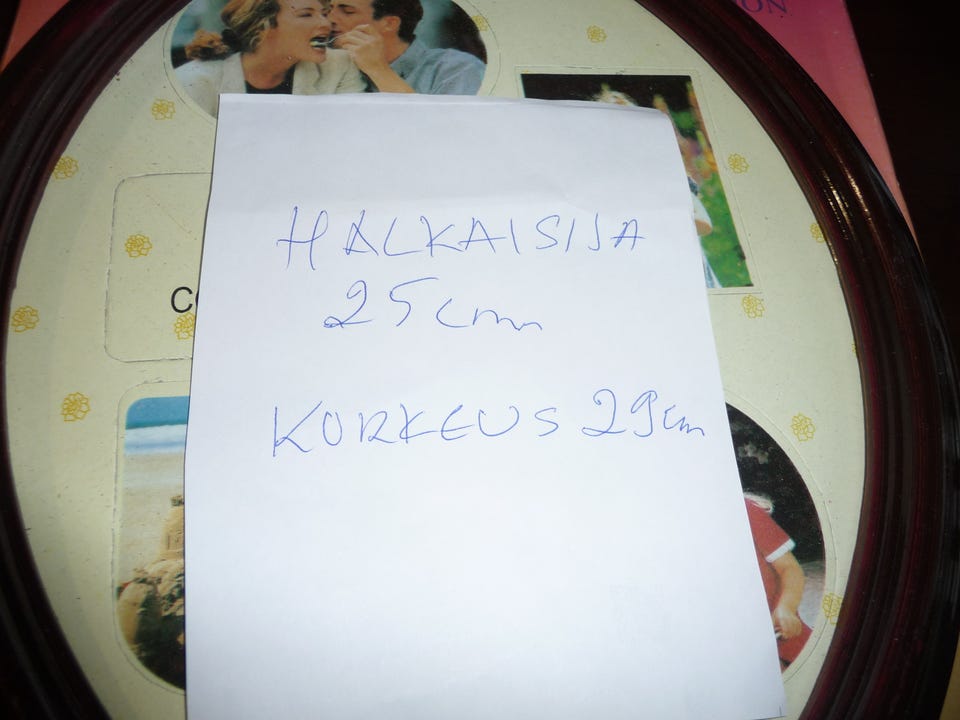 ON
HALKAISIJA
25cm
CO
KORKEUS 29cm